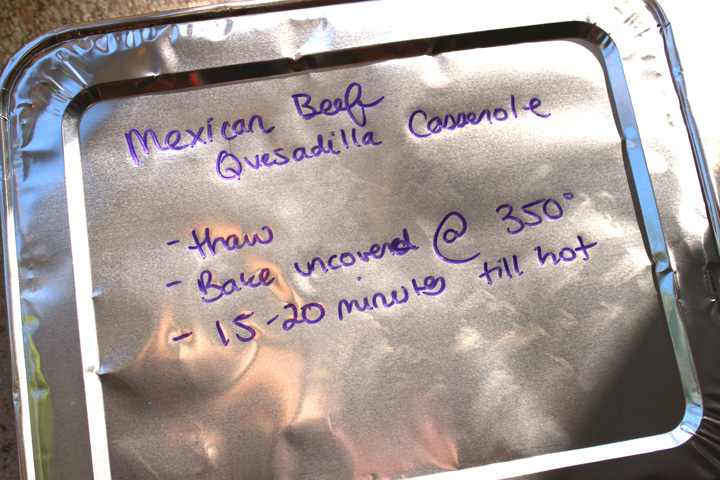 Mexican Beef
Quesadilla Casserole
- thaw
- Bake uncovered @ 350°
- 15-20 minutes till hot